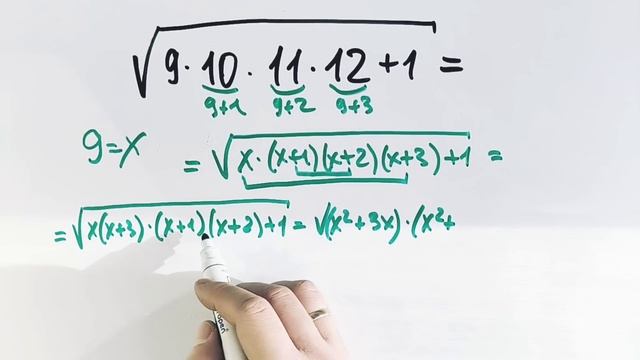 √9·10·11·12+1 =
9+1 9+2 9+3
9=x = √x·(x+1)(x+2)(x+3)+1 =
= √x(x+3)·(x+1)(x+2)+1 = √(x²+3x)·(x²+